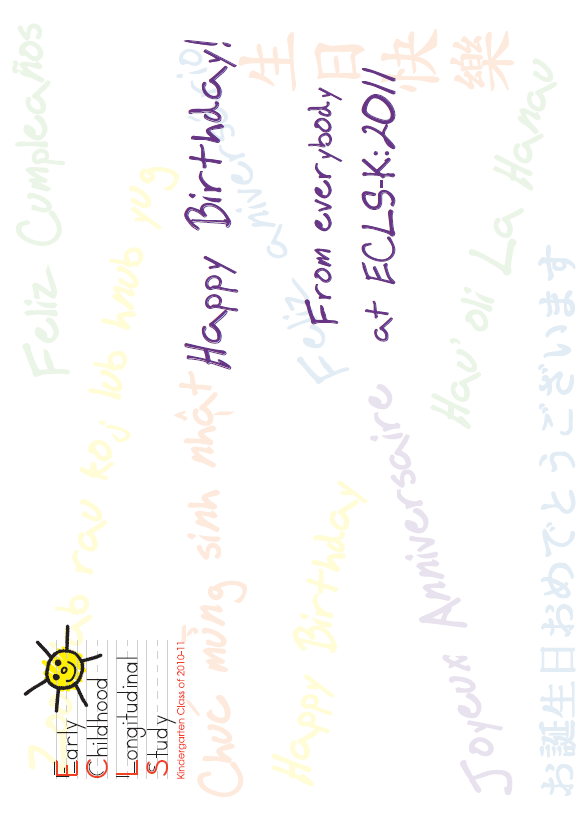 Feliz Cumpleaños
rau koj lub hnub yug
Chúc mừng sinh nhật
Happy Birthday!
From everybody
at ECLS-K:2011
生日快樂
Feliz aniversario
Happy Birthday
Joyeux Anniversaire
Hau'oli La Hanau
お誕生日おめでとうございます
Early
Childhood
Longitudinal
Study
Kindergarten Class of 2010-11